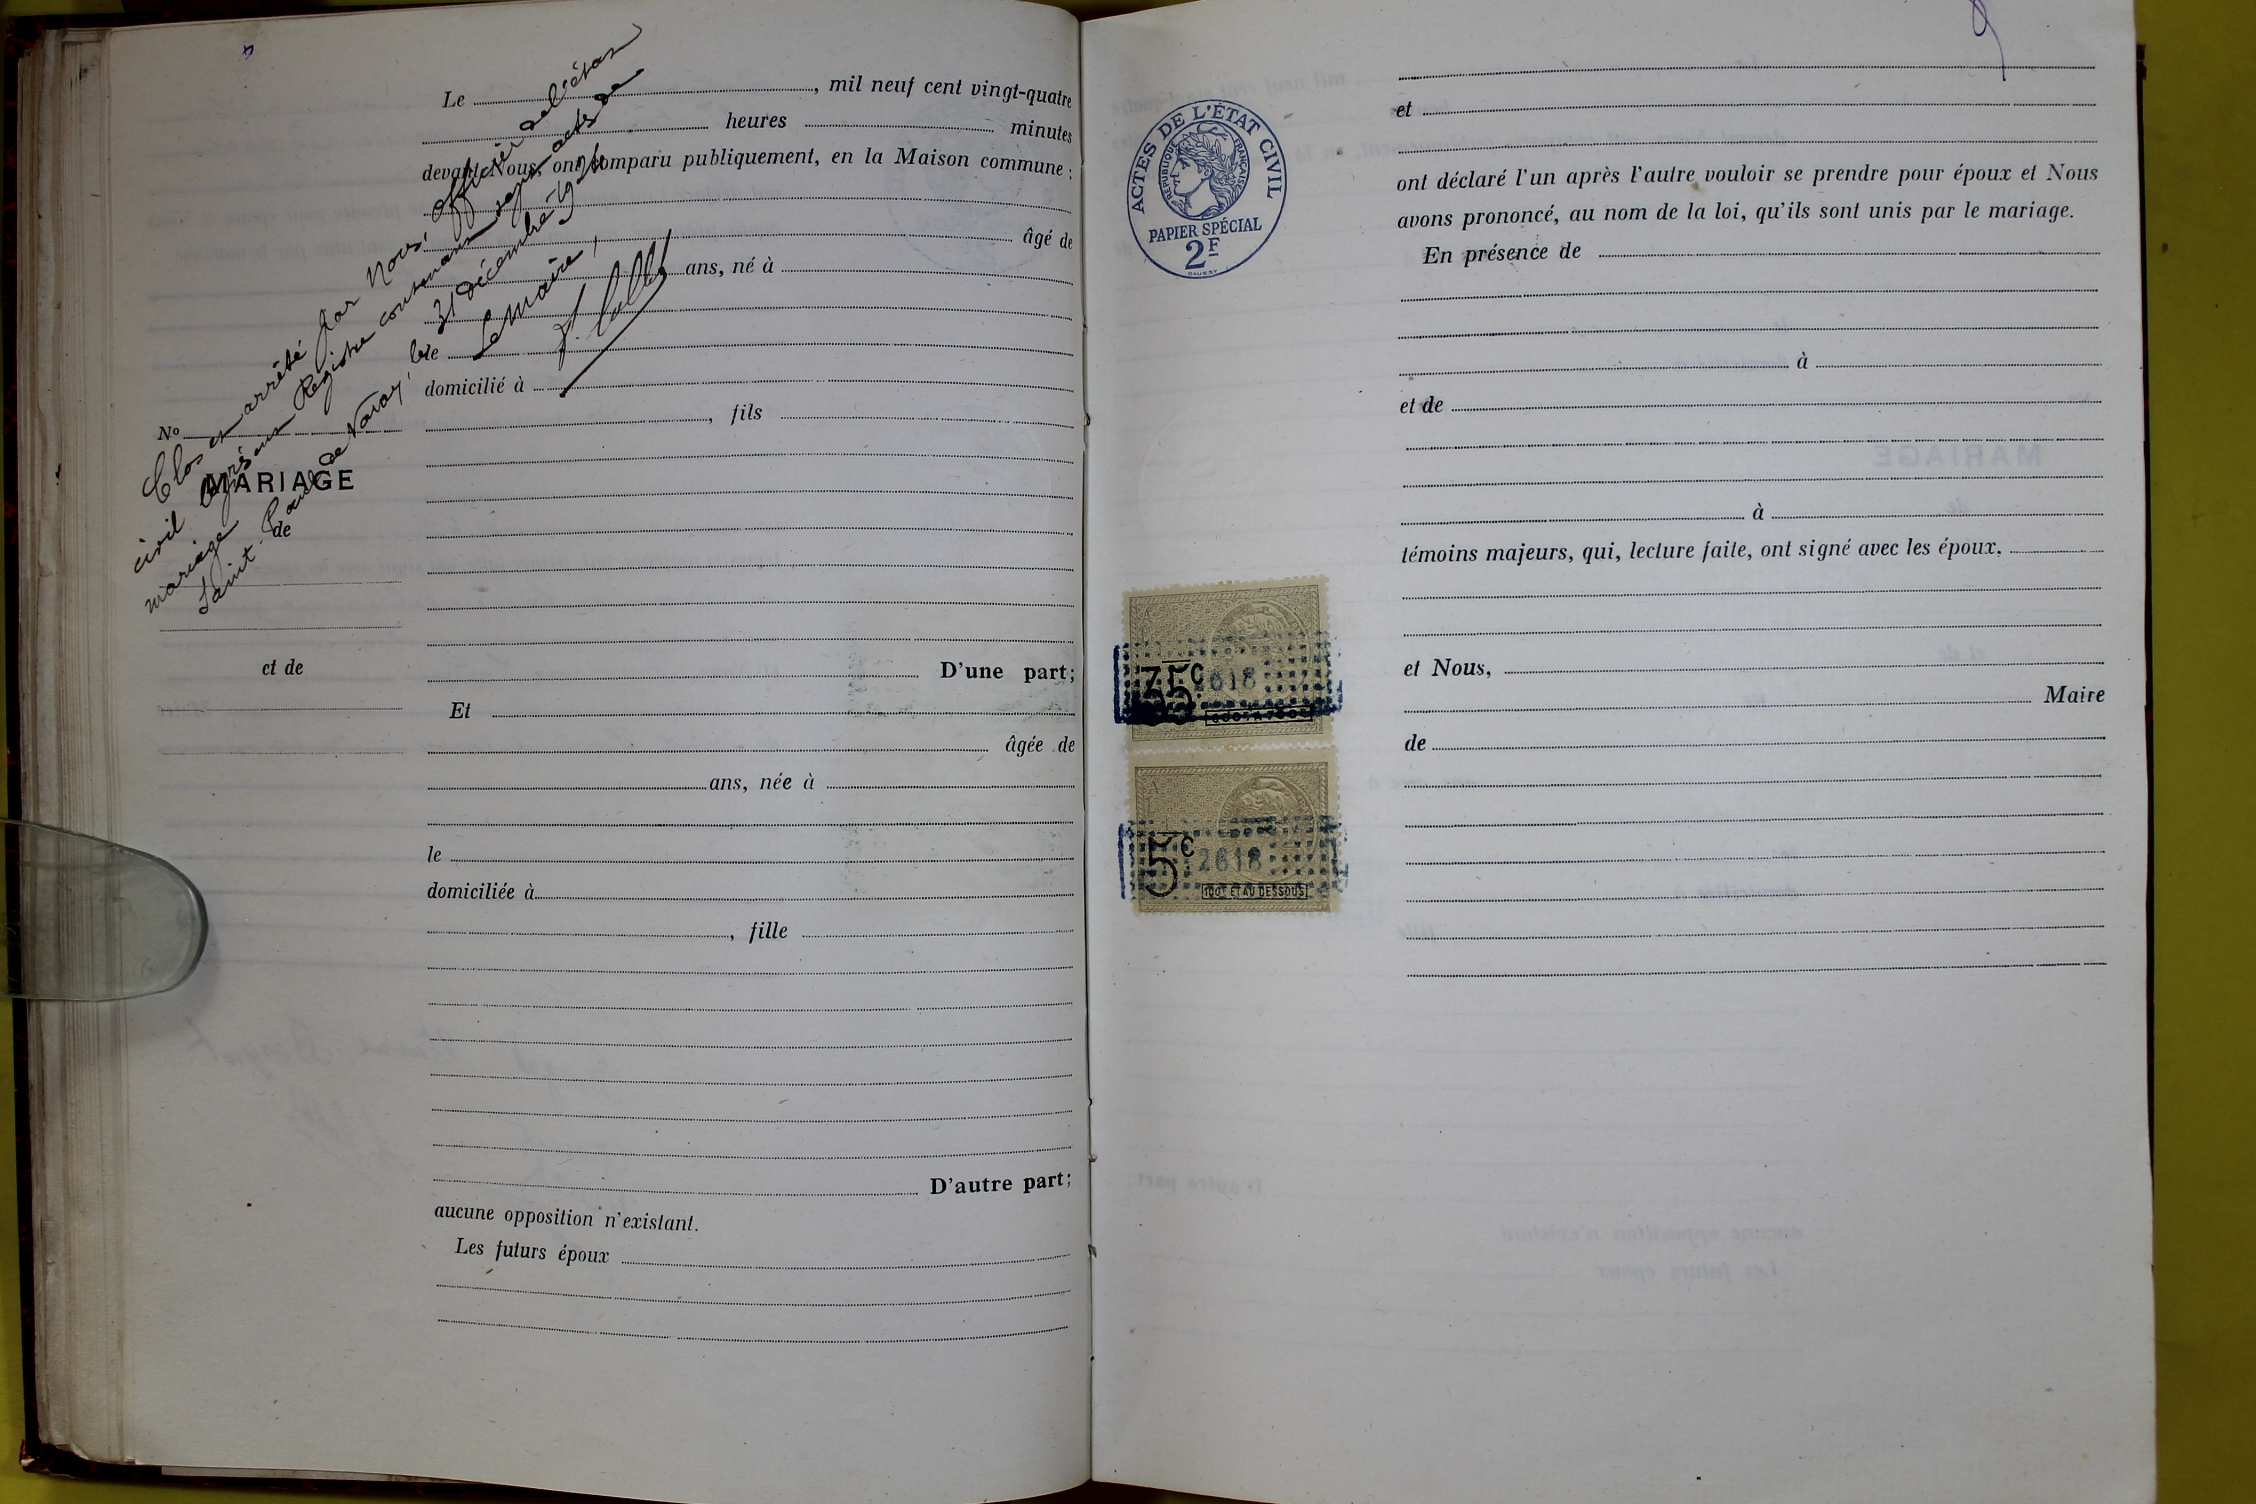 Clos et arrêté par Nous, officier de l'état
civil le présent Registre contenant sept actes de
mariage
Saint-Paul de Varax, le 31 décembre 1924
Le Maire,
Le , mil neuf cent vingt-quatre
heures minutes
devant Nous, ont comparu publiquement, en la Maison commune :
âgé de
ans, né à
le
domicilié à
, fils
No
MARIAGE
de
et de
D'une part;
Et
âgée de
ans, née à
le
domiciliée à
, fille
D'autre part;
aucune opposition n'existant.
Les futurs époux
ACTES DE L'ÉTAT CIVIL
RÉPUBLIQUE FRANÇAISE
PAPIER SPÉCIAL
2F
35c
618
5c
2618
100F ET AU DESSOUS
et
ont déclaré l'un après l'autre vouloir se prendre pour époux et Nous
avons prononcé, au nom de la loi, qu'ils sont unis par le mariage.
En présence de
à
et de
à
témoins majeurs, qui, lecture faite, ont signé avec les époux.
et Nous,
Maire
de